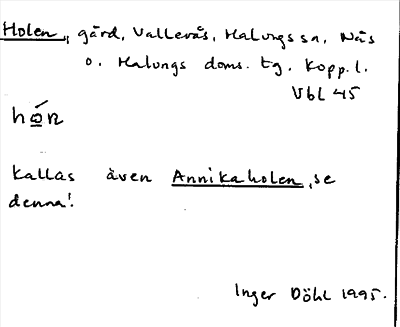 Holen, gård, Vallerås, Malungs sn, Näs
o. Malungs doms. tg. Kopp. l.
Vbl 45
hón
Kallas även Annikaholen, se
denna!
Inger Döhl 1995.